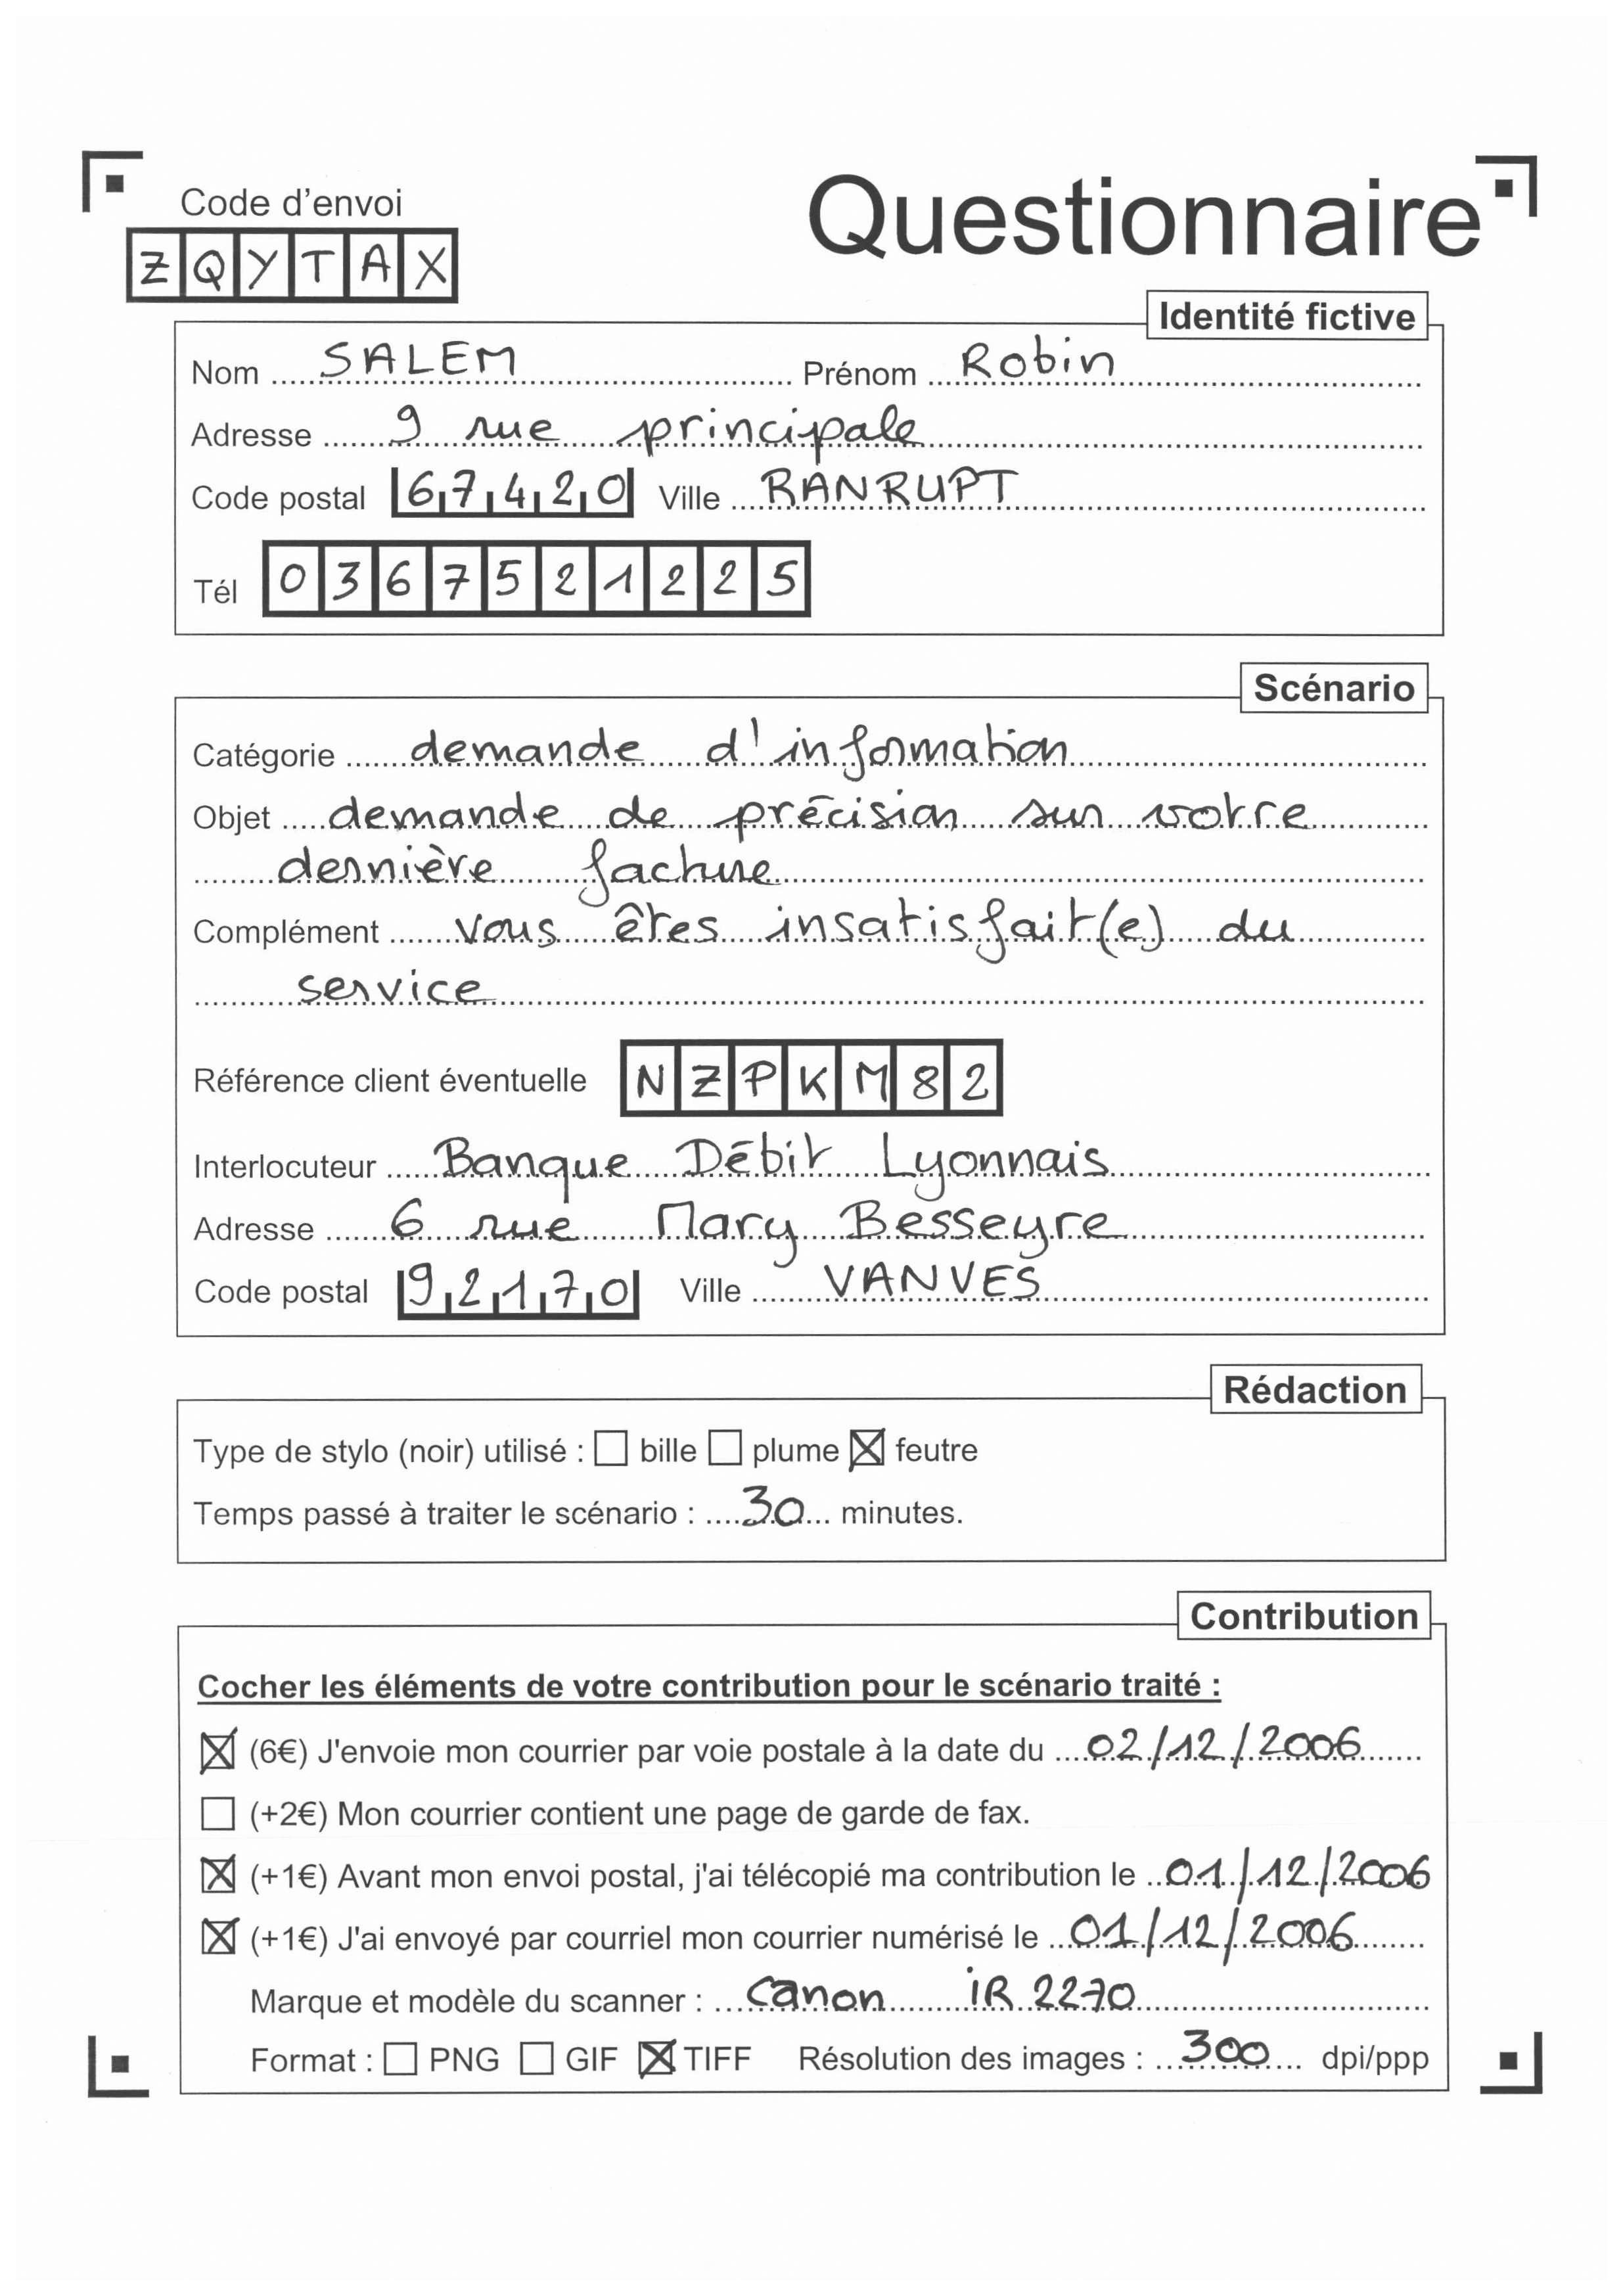 Code d'envoi
Questionnaire
ZQYTAX
Identité fictive
Nom SALEM Prénom Robin
Adresse 9 rue principale
Code postal 67420 Ville RANRUPT
Tél 0367521225
Scénario
Catégorie demande d'information
Objet demande de précision sur votre
dernière facture
Complément vous êtes insatisfait(e) du
service
Référence client éventuelle NZPKM82
Interlocuteur Banque Débit Lyonnais
Adresse 6 rue Mary Besseyre
Code postal 92170 Ville VANVES
Rédaction
Type de stylo (noir) utilisé : ☐ bille ☐ plume ☒ feutre
Temps passé à traiter le scénario : 30 minutes.
Contribution
Cocher les éléments de votre contribution pour le scénario traité :
☒ (6€) J'envoie mon courrier par voie postale à la date du 02/12/2006
☐ (+2€) Mon courrier contient une page de garde de fax.
☒ (+1€) Avant mon envoi postal, j'ai télécopié ma contribution le 01/12/2006
☒ (+1€) J'ai envoyé par courriel mon courrier numérisé le 01/12/2006
Marque et modèle du scanner : Canon iR 2270
Format : ☐ PNG ☐ GIF ☒ TIFF Résolution des images : 300 dpi/ppp